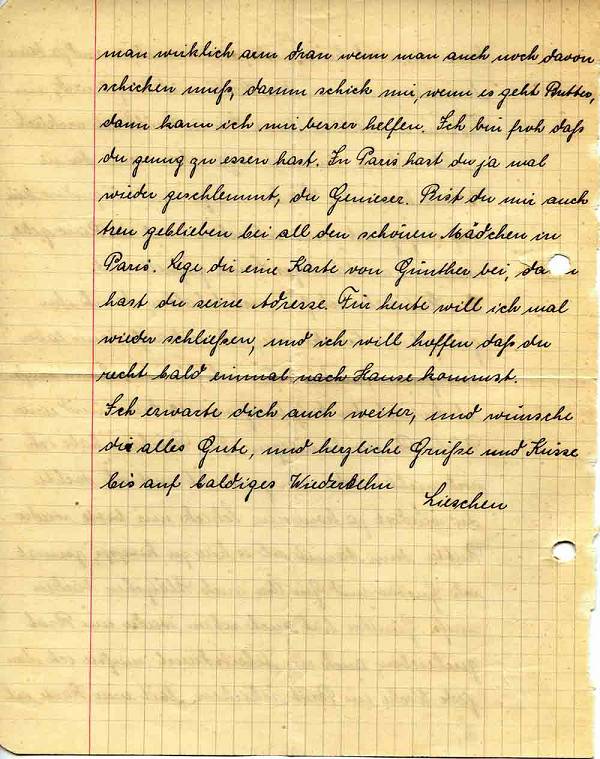 man wirklich arm dran wenn man auch noch davon
schicken muß, darum schick mir, wenn es geht Butter,
dann kann ich mir besser helfen. Ich bin froh daß
du genug zu essen hast. In Paris hast du ja mal
wieder geschlemmt, du Genieser. Bist du mir auch
treu geblieben bei all den schönen Mädchen in
Paris. Lege dir eine Karte von Günther bei, da n
hast du seine Adresse. Für heute will ich mal
wieder schließen, und ich will hoffen daß du
recht bald einmal nach Hause kommst.
Ich erwarte dich auch weiter, und wünsche
dir alles Gute, und herzliche Grüße und Küsse
bis auf baldiges Wiedersehn
Lieschen